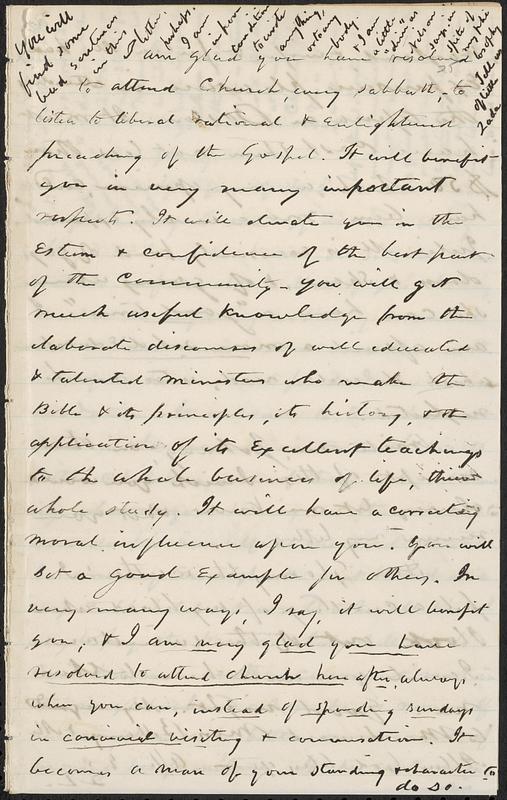 You will
find some
bad sentences
in this
letter.
perhaps.
I am
upon
condition
to write
anything,
or to any
body.
& I am
a little
"dim" as
Nelson
says in
spite of
my
Tell us
of little
Zada
I am glad you have resolved
to attend Church, every sabbath, to
listen to liberal rational & Enlightened
preaching of the Gospel. It will benefit
you in very many important
respects. It will elevate you in the
Esteem & confidence of the best part
of the Community - you will get
much useful knowledge from the
elaborate discourses of well educated
& talented ministers who make the
Bible & its principles, its history, & the
application of its Excellent teachings
to the whole business of life, their
whole study. It will have a correcting
moral influence upon you. You will
set a good Example for others. In
very many ways, I say, it will benefit
you, & I am very glad you have
resolved to attend church here after, always
when you can, instead of spending sundays
in convivial visiting & conversation. It
becomes a man of your standing & character to
do so.